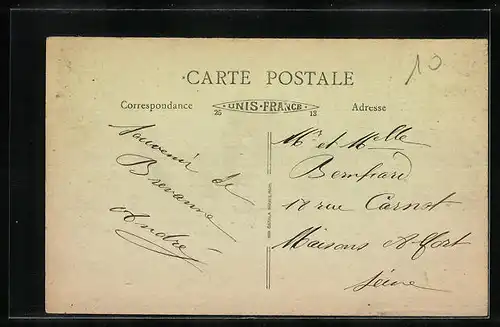 10
CARTE POSTALE
Correspondance
UNIS-FRANCE
25 13
Adresse
Souvenir de
Brevanne
André
Mr et Melle
18 rue Carnot
Maisons Alfort
Seine